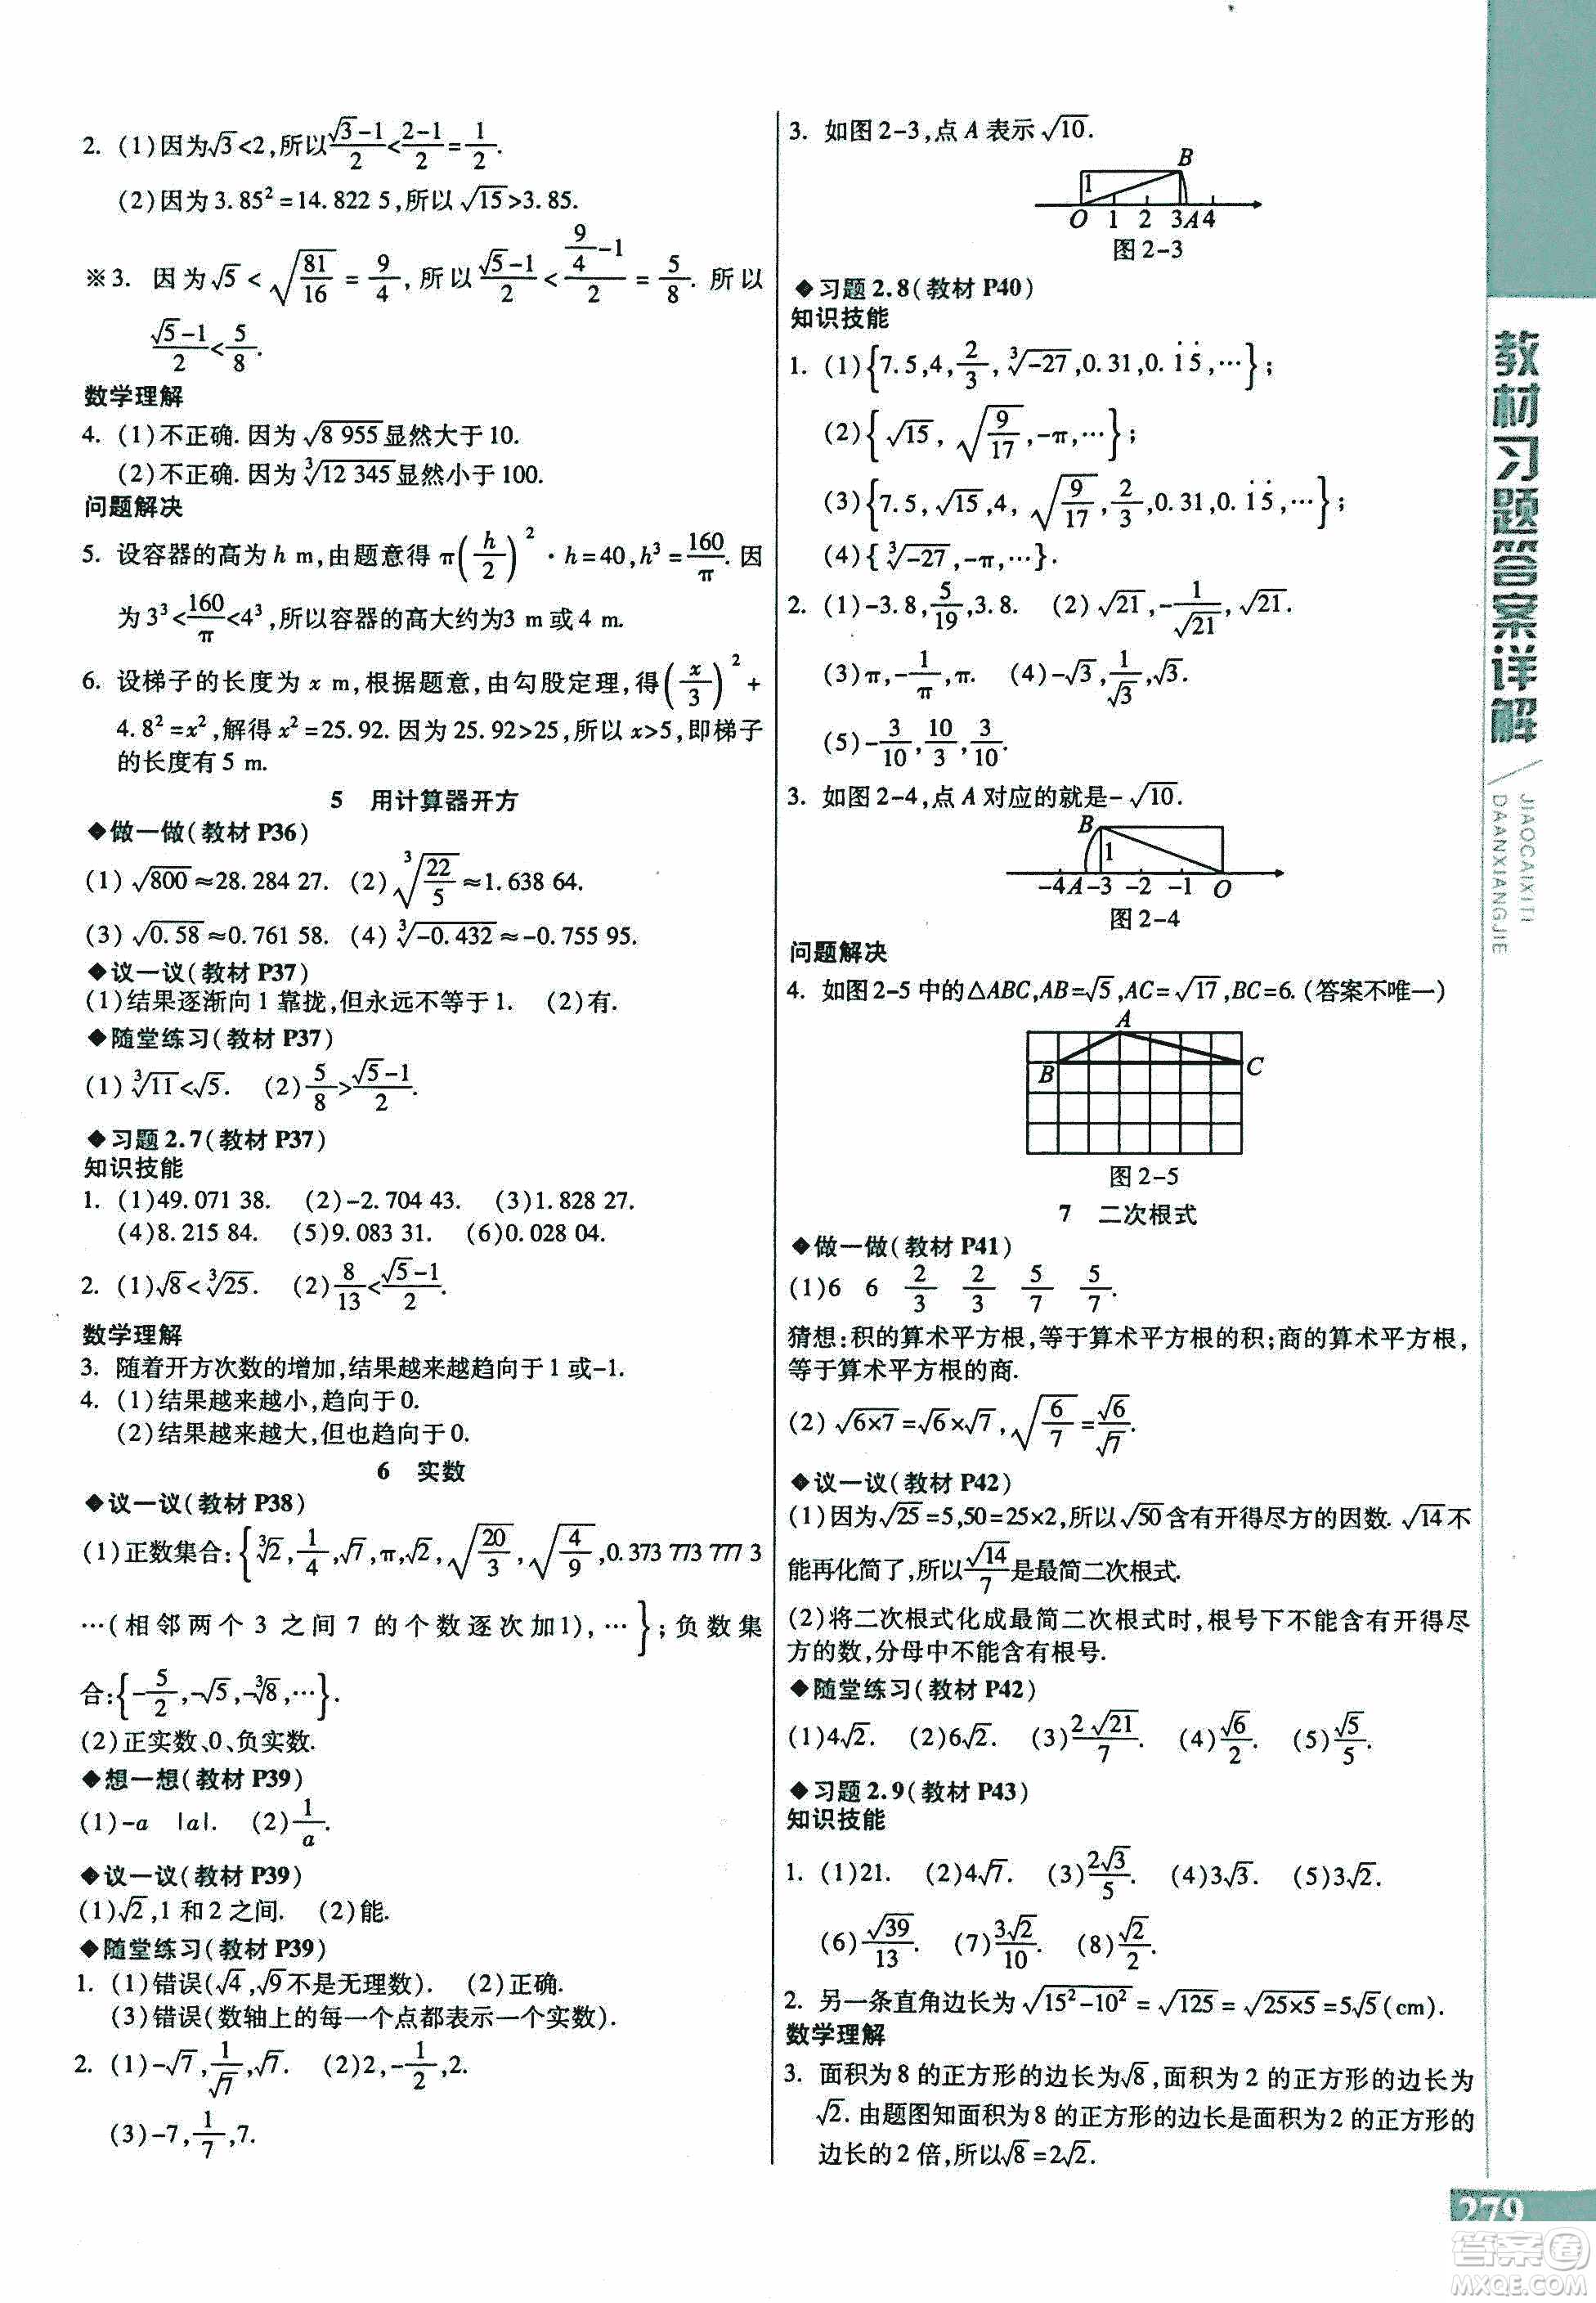 2. (1)因为√3<2,所以(√3-1)/2<(2-1)/2=1/2.
(2)因为3.85²=14.822 5,所以√15>3.85.
※3. 因为√5<√(81/16)=9/4,所以(√5-1)/2<(9/4-1)/2=5/8.所以
(√5-1)/2<5/8.
数学理解
4. (1)不正确.因为√(8 955)显然大于10.
(2)不正确.因为∛(12 345)显然小于100.
问题解决
5. 设容器的高为h m,由题意得π(h/2)²·h=40,h³=160/π.因
为3³<160/π<4³,所以容器的高大约为3 m或4 m.
6. 设梯子的长度为x m,根据题意,由勾股定理,得(x/3)²+
4.8²=x²,解得x²=25.92.因为25.92>25,所以x>5,即梯子
的长度有5 m.
5 用计算器开方
◆做一做(教材P36)
(1)√800≈28.284 27. (2)∛(22/5)≈1.638 64.
(3)√0.58≈0.761 58. (4)∛-0.432≈-0.755 95.
◆议一议(教材P37)
(1)结果逐渐向1靠拢,但永远不等于1. (2)有.
◆随堂练习(教材P37)
(1)∛11<√5. (2)5/8>(√5-1)/2.
◆习题2.7(教材P37)
知识技能
1. (1)49.071 38. (2)-2.704 43. (3)1.828 27.
(4)8.215 84. (5)9.083 31. (6)0.028 04.
2. (1)√8<∛25. (2)8/13<(√5-1)/2.
数学理解
3. 随着开方次数的增加,结果越来越趋向于1或-1.
4. (1)结果越来越小,趋向于0.
(2)结果越来越大,但也趋向于0.
6 实数
◆议一议(教材P38)
(1)正数集合:{∛2,1/4,√7,π,√2,√(20/3),√(4/9),0.373 773 777 3
…(相邻两个3之间7的个数逐次加1),…};负数集
合:{-5/2,-√5,-∛8,…}.
(2)正实数、0、负实数.
◆想一想(教材P39)
(1)-a |a|. (2)1/a.
◆议一议(教材P39)
(1)√2,1和2之间. (2)能.
◆随堂练习(教材P39)
1. (1)错误(√4,√9不是无理数). (2)正确.
(3)错误(数轴上的每一个点都表示一个实数).
2. (1)-√7,1/√7,√7. (2)2,-1/2,2.
(3)-7,1/7,7.
3. 如图2-3,点A表示√10.
B
1
O 1 2 3A4
图2-3
◆习题2.8(教材P40)
知识技能
1. (1){7.5,4,2/3,∛-27,0.31,0.1̇5̇,…};
(2){√15,√(9/17),-π,…};
(3){7.5,√15,4,√(9/17),2/3,0.31,0.1̇5̇,…};
(4){∛-27,-π,…}.
2. (1)-3.8,5/19,3.8. (2)√21,-1/√21,√21.
(3)π,-1/π,π. (4)-√3,1/√3,√3.
(5)-3/10,10/3,3/10.
3. 如图2-4,点A对应的就是-√10.
B
1
-4A-3 -2 -1 O
图2-4
问题解决
4. 如图2-5中的△ABC,AB=√5,AC=√17,BC=6.(答案不唯一)
A
B C
图2-5
7 二次根式
◆做一做(教材P41)
(1)6 6 2/3 2/3 5/7 5/7.
猜想:积的算术平方根,等于算术平方根的积;商的算术平方根,
等于算术平方根的商.
(2)√(6×7)=√6×√7,√(6/7)=√6/√7.
◆议一议(教材P42)
(1)因为√25=5,50=25×2,所以√50含有开得尽方的因数.√14不
能再化简了,所以√14/7是最简二次根式.
(2)将二次根式化成最简二次根式时,根号下不能含有开得尽
方的数,分母中不能含有根号.
◆随堂练习(教材P42)
(1)4√2. (2)6√2. (3)2√21/7. (4)√6/2. (5)√5/5.
◆习题2.9(教材P43)
知识技能
1. (1)21. (2)4√7. (3)2√3/5. (4)3√3. (5)3√2.
(6)√39/13. (7)3√2/10. (8)√2/2.
2. 另一条直角边长为√(15²-10²)=√125=√(25×5)=5√5(cm).
数学理解
3. 面积为8的正方形的边长为√8,面积为2的正方形的边长为
√2.由题图知面积为8的正方形的边长是面积为2的正方形的
边长的2倍,所以√8=2√2.
教材习题答案详解
JIAOCAIXITI
DAANXIANGJIE
279
答案圈
MXQE.COM